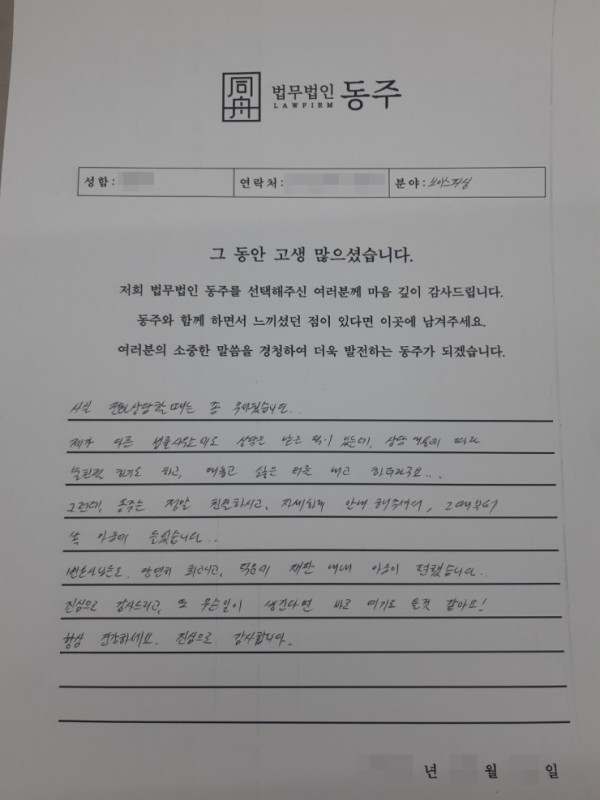 同舟
법무법인 동주
LAWFIRM
성함: 연락처: 분야: 보이스피싱
그 동안 고생 많으셨습니다.
저희 법무법인 동주를 선택해주신 여러분께 마음 깊이 감사드립니다.
동주와 함께 하면서 느끼셨던 점이 있다면 이곳에 남겨주세요.
여러분의 소중한 말씀을 경청하여 더욱 발전하는 동주가 되겠습니다.
사실 전화상담할 때는 좀 무서웠습니다..
제가 다른 법률사무소에도 상담을 받은 적이 있는데, 상담 따라
불친절 하기도 하고, 싶은 내고 하더라구요...
그런데, 동주는 정말 친절하시고, 자세하게 안내해주셔서, 그때부터
쏙 마음에 들었습니다..
변호사님들은, 당연히 최고시고, 덕분에 재판 내내 마음이 편했습니다..
진심으로 감사드리고, 또 무슨일이 생긴다면 바로 여기로 올것 같아요!
항상 건강하세요. 진심으로 감사합니다.
년 월 일